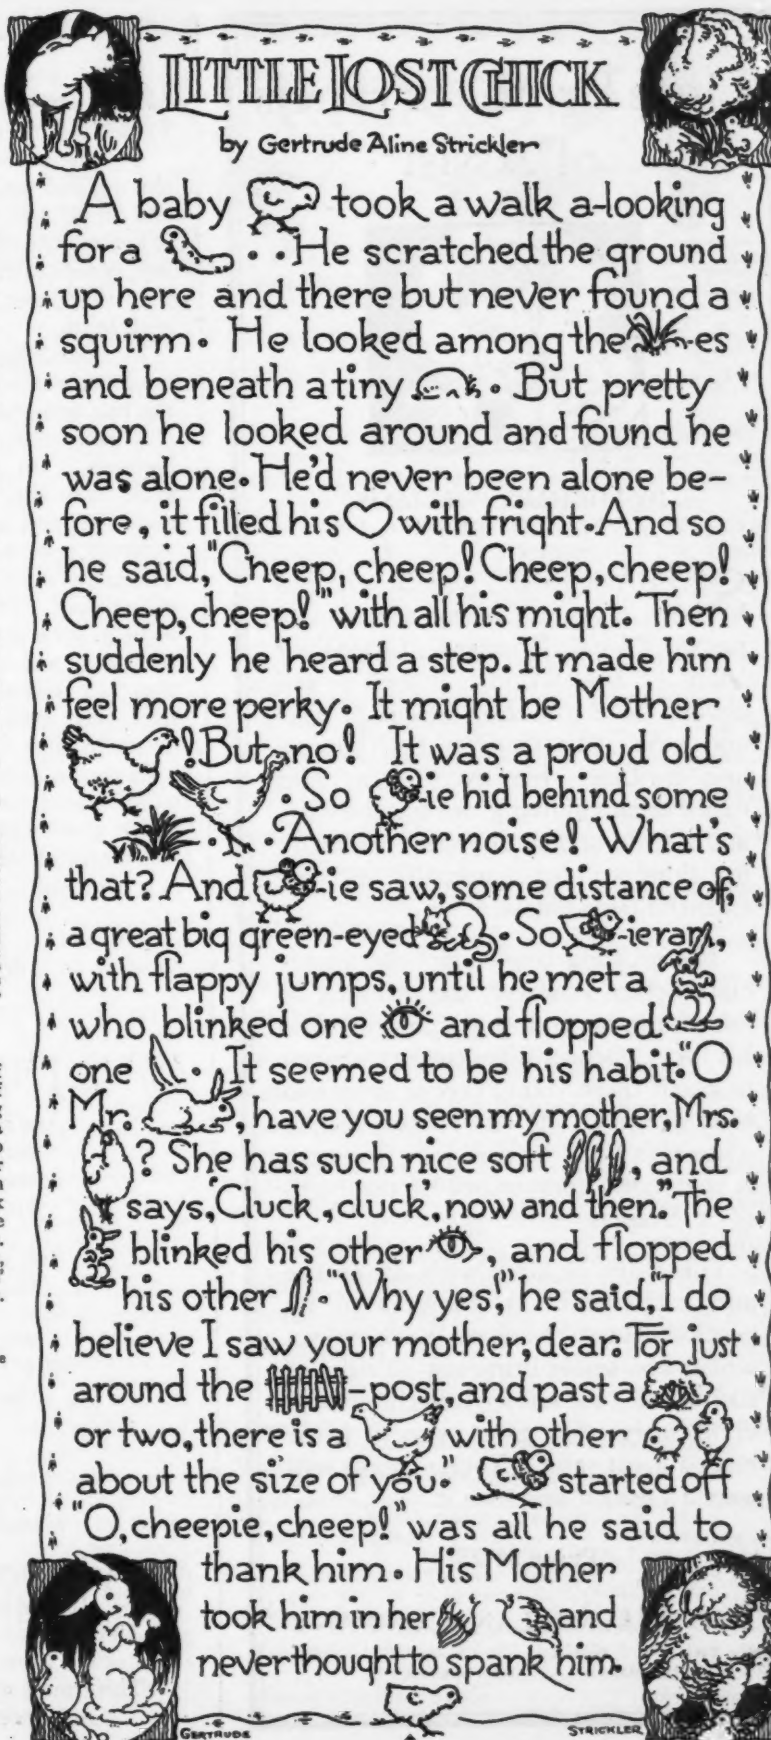 LITTLE LOST CHICK
by Gertrude Aline Strickler
A baby took a walk a-looking
for a . . He scratched the ground
up here and there but never found a
squirm. He looked among the -es
and beneath a tiny . But pretty
soon he looked around and found he
was alone. He'd never been alone be-
fore, it filled his with fright. And so
he said, "Cheep, cheep! Cheep, cheep!
Cheep, cheep!" with all his might. Then
suddenly he heard a step. It made him
feel more perky. It might be Mother
! But no! It was a proud old
. So -ie hid behind some
. . Another noise! What's
that? And -ie saw, some distance off,
a great big green-eyed . So -ie ran,
with flappy jumps, until he met a
who blinked one and flopped
one . It seemed to be his habit. "O
Mr. , have you seen my mother, Mrs.
? She has such nice soft , and
says, 'Cluck, cluck', now and then." The
blinked his other , and flopped
his other . "Why yes!" he said, "I do
believe I saw your mother, dear. For just
around the -post, and past a
or two, there is a with other
about the size of you." started off
"O, cheepie, cheep!" was all he said to
thank him. His Mother
took him in her and
never thought to spank him.
GERTRUDE STRICKLER